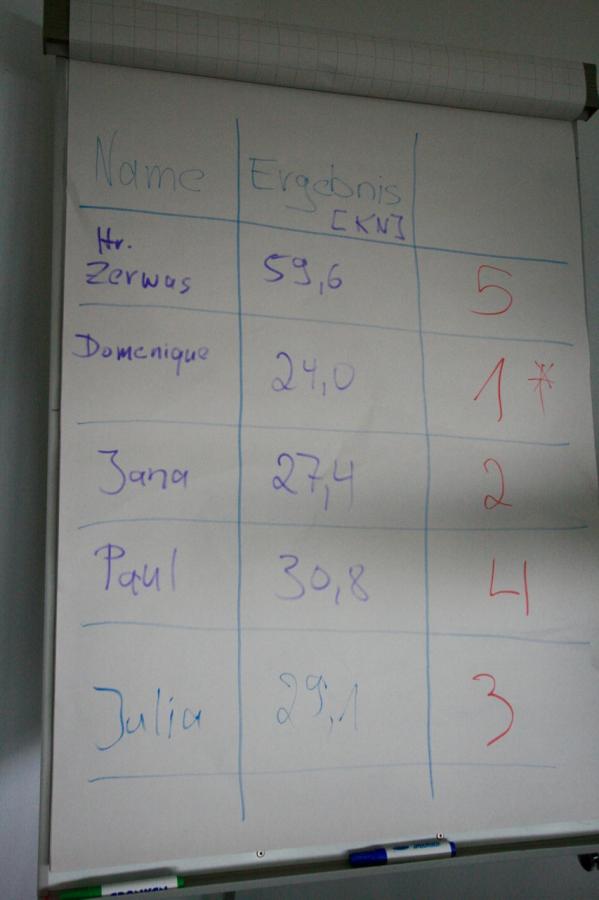 Name Ergebnis
[KN]
Hr.
Zerwas 59,6 5
Domenique 24,0 1 *
Jana 27,4 2
Paul 30,8 4
Julia 29,1 3